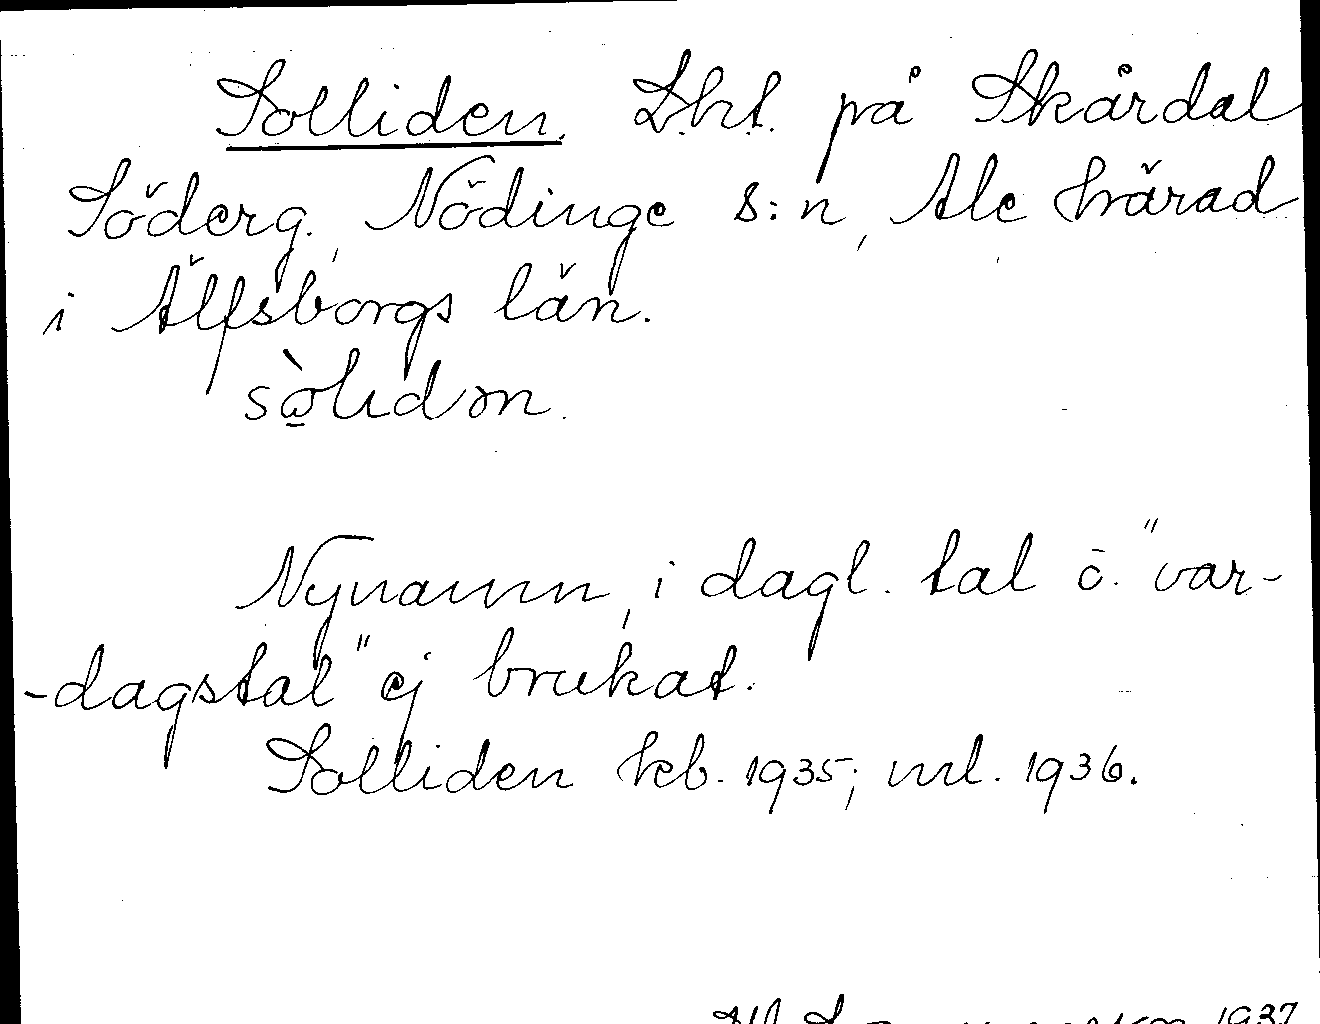 Solliden. Lht. på Skårdal
Söderg., Nödinge s:n, Ale härad
i Älfsborgs län.
sòlıdən.
Nynamn, i dagl. tal o. "var-
-dagstal" ej brukat.
Solliden kb. 1935; ml. 1936.
1937